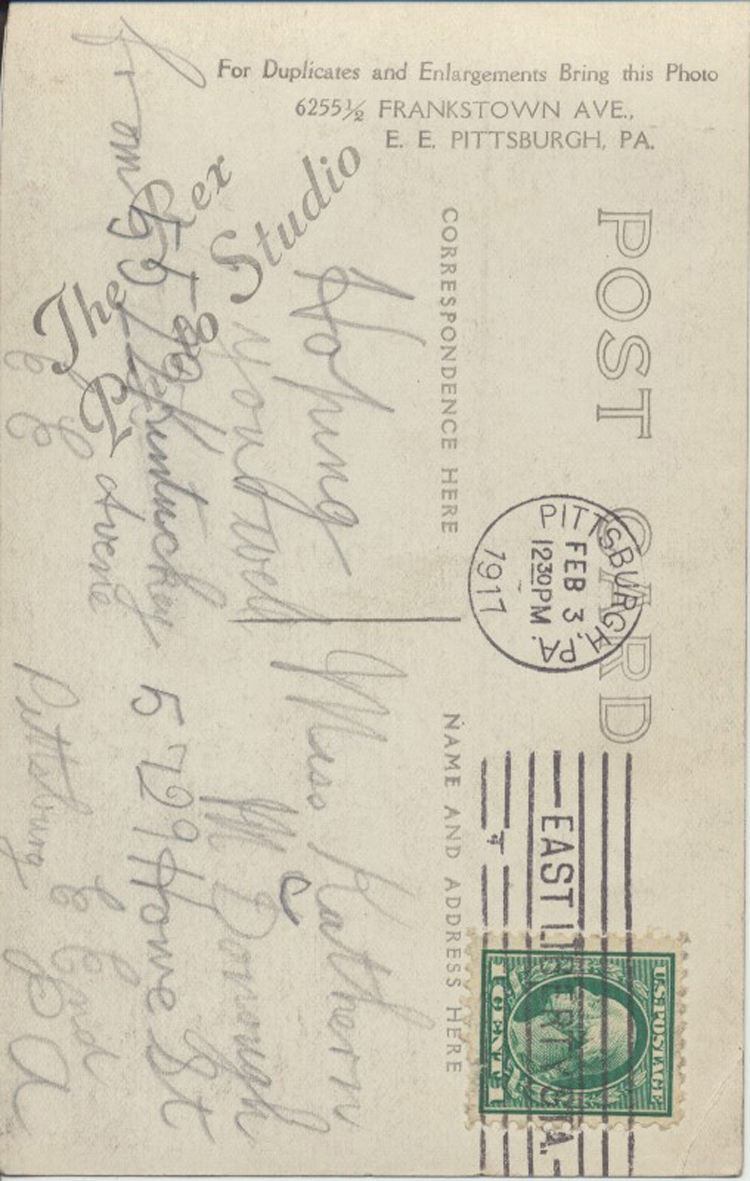 For Duplicates and Enlargements Bring this Photo
6255½ FRANKSTOWN AVE.,
E. E. PITTSBURGH, PA.
The Rex
Photo Studio
POST CARD
CORRESPONDENCE HERE
NAME AND ADDRESS HERE
PITTSBURGH, PA.
FEB 3
1230 PM
1917
EAST LIBERTY STA.
U.S. POSTAGE
1 CENT 1
Hoping
you well
from 5579
Kentucky
Avene
E E
Miss Kathern
Mc Donough
5729 Howe St
E End
Pittsburg
PA